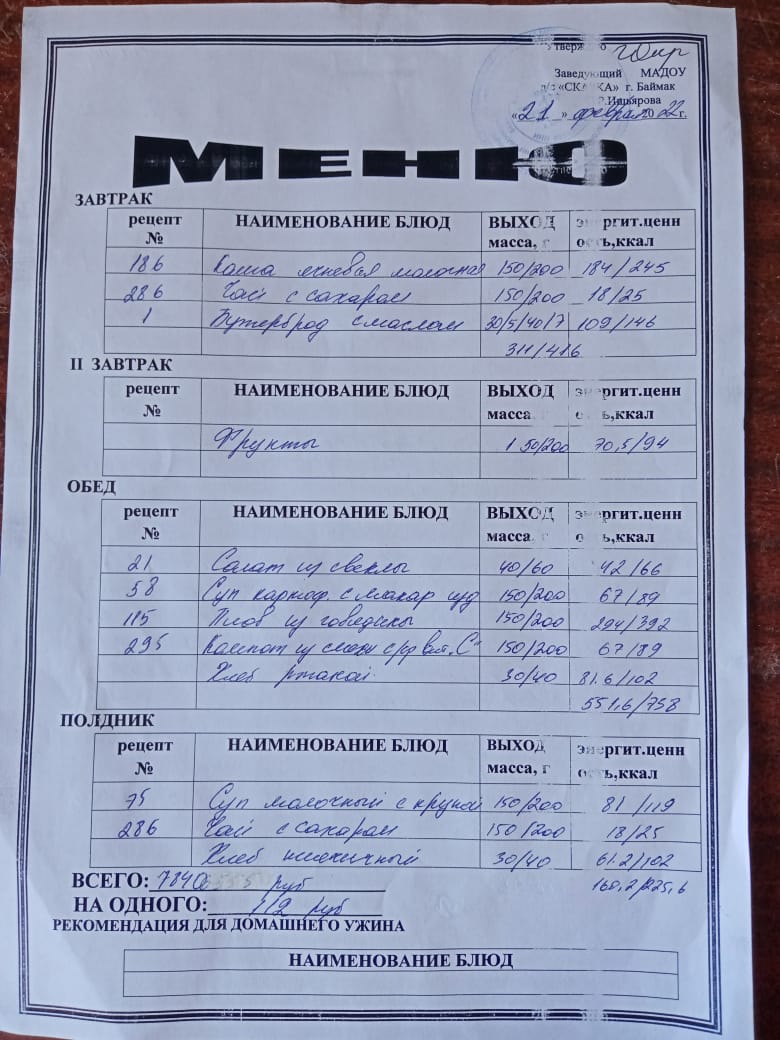 Утверждаю
Заведующий МАДОУ
д/с «СКАЗКА» г. Баймак
«21» февраля 2022 г.
МЕНЮ
ЗАВТРАК
рецепт № НАИМЕНОВАНИЕ БЛЮД ВЫХОД масса, г энергит.ценность,ккал
186 Каша ячневая молочная 150/200 184/245
286 Чай с сахаром 150/200 18/25
1 Бутерброд с маслом 30/5/40/7 109/146
311/416
II ЗАВТРАК
рецепт № НАИМЕНОВАНИЕ БЛЮД ВЫХОД масса, г энергит.ценность,ккал
Фрукты 150/200 70,5/94
ОБЕД
рецепт № НАИМЕНОВАНИЕ БЛЮД ВЫХОД масса, г энергит.ценность,ккал
21 Салат из свеклы 40/60 42/66
58 Суп картоф. с макар изд 150/200 67/89
115 Плов из говядины 150/200 294/392
295 Компот из смеси с/ф вит. "С" 150/200 67/89
Хлеб ржаной 30/40 81.6/102
551,6/738
ПОЛДНИК
рецепт № НАИМЕНОВАНИЕ БЛЮД ВЫХОД масса, г энергит.ценность,ккал
75 Суп молочный с крупой 150/200 81/119
286 Чай с сахаром 150/200 18/25
Хлеб пшеничный 30/40 61.2/102
160,2/225,6
ВСЕГО: 7840 руб
НА ОДНОГО: 112 руб
РЕКОМЕНДАЦИЯ ДЛЯ ДОМАШНЕГО УЖИНА
НАИМЕНОВАНИЕ БЛЮД